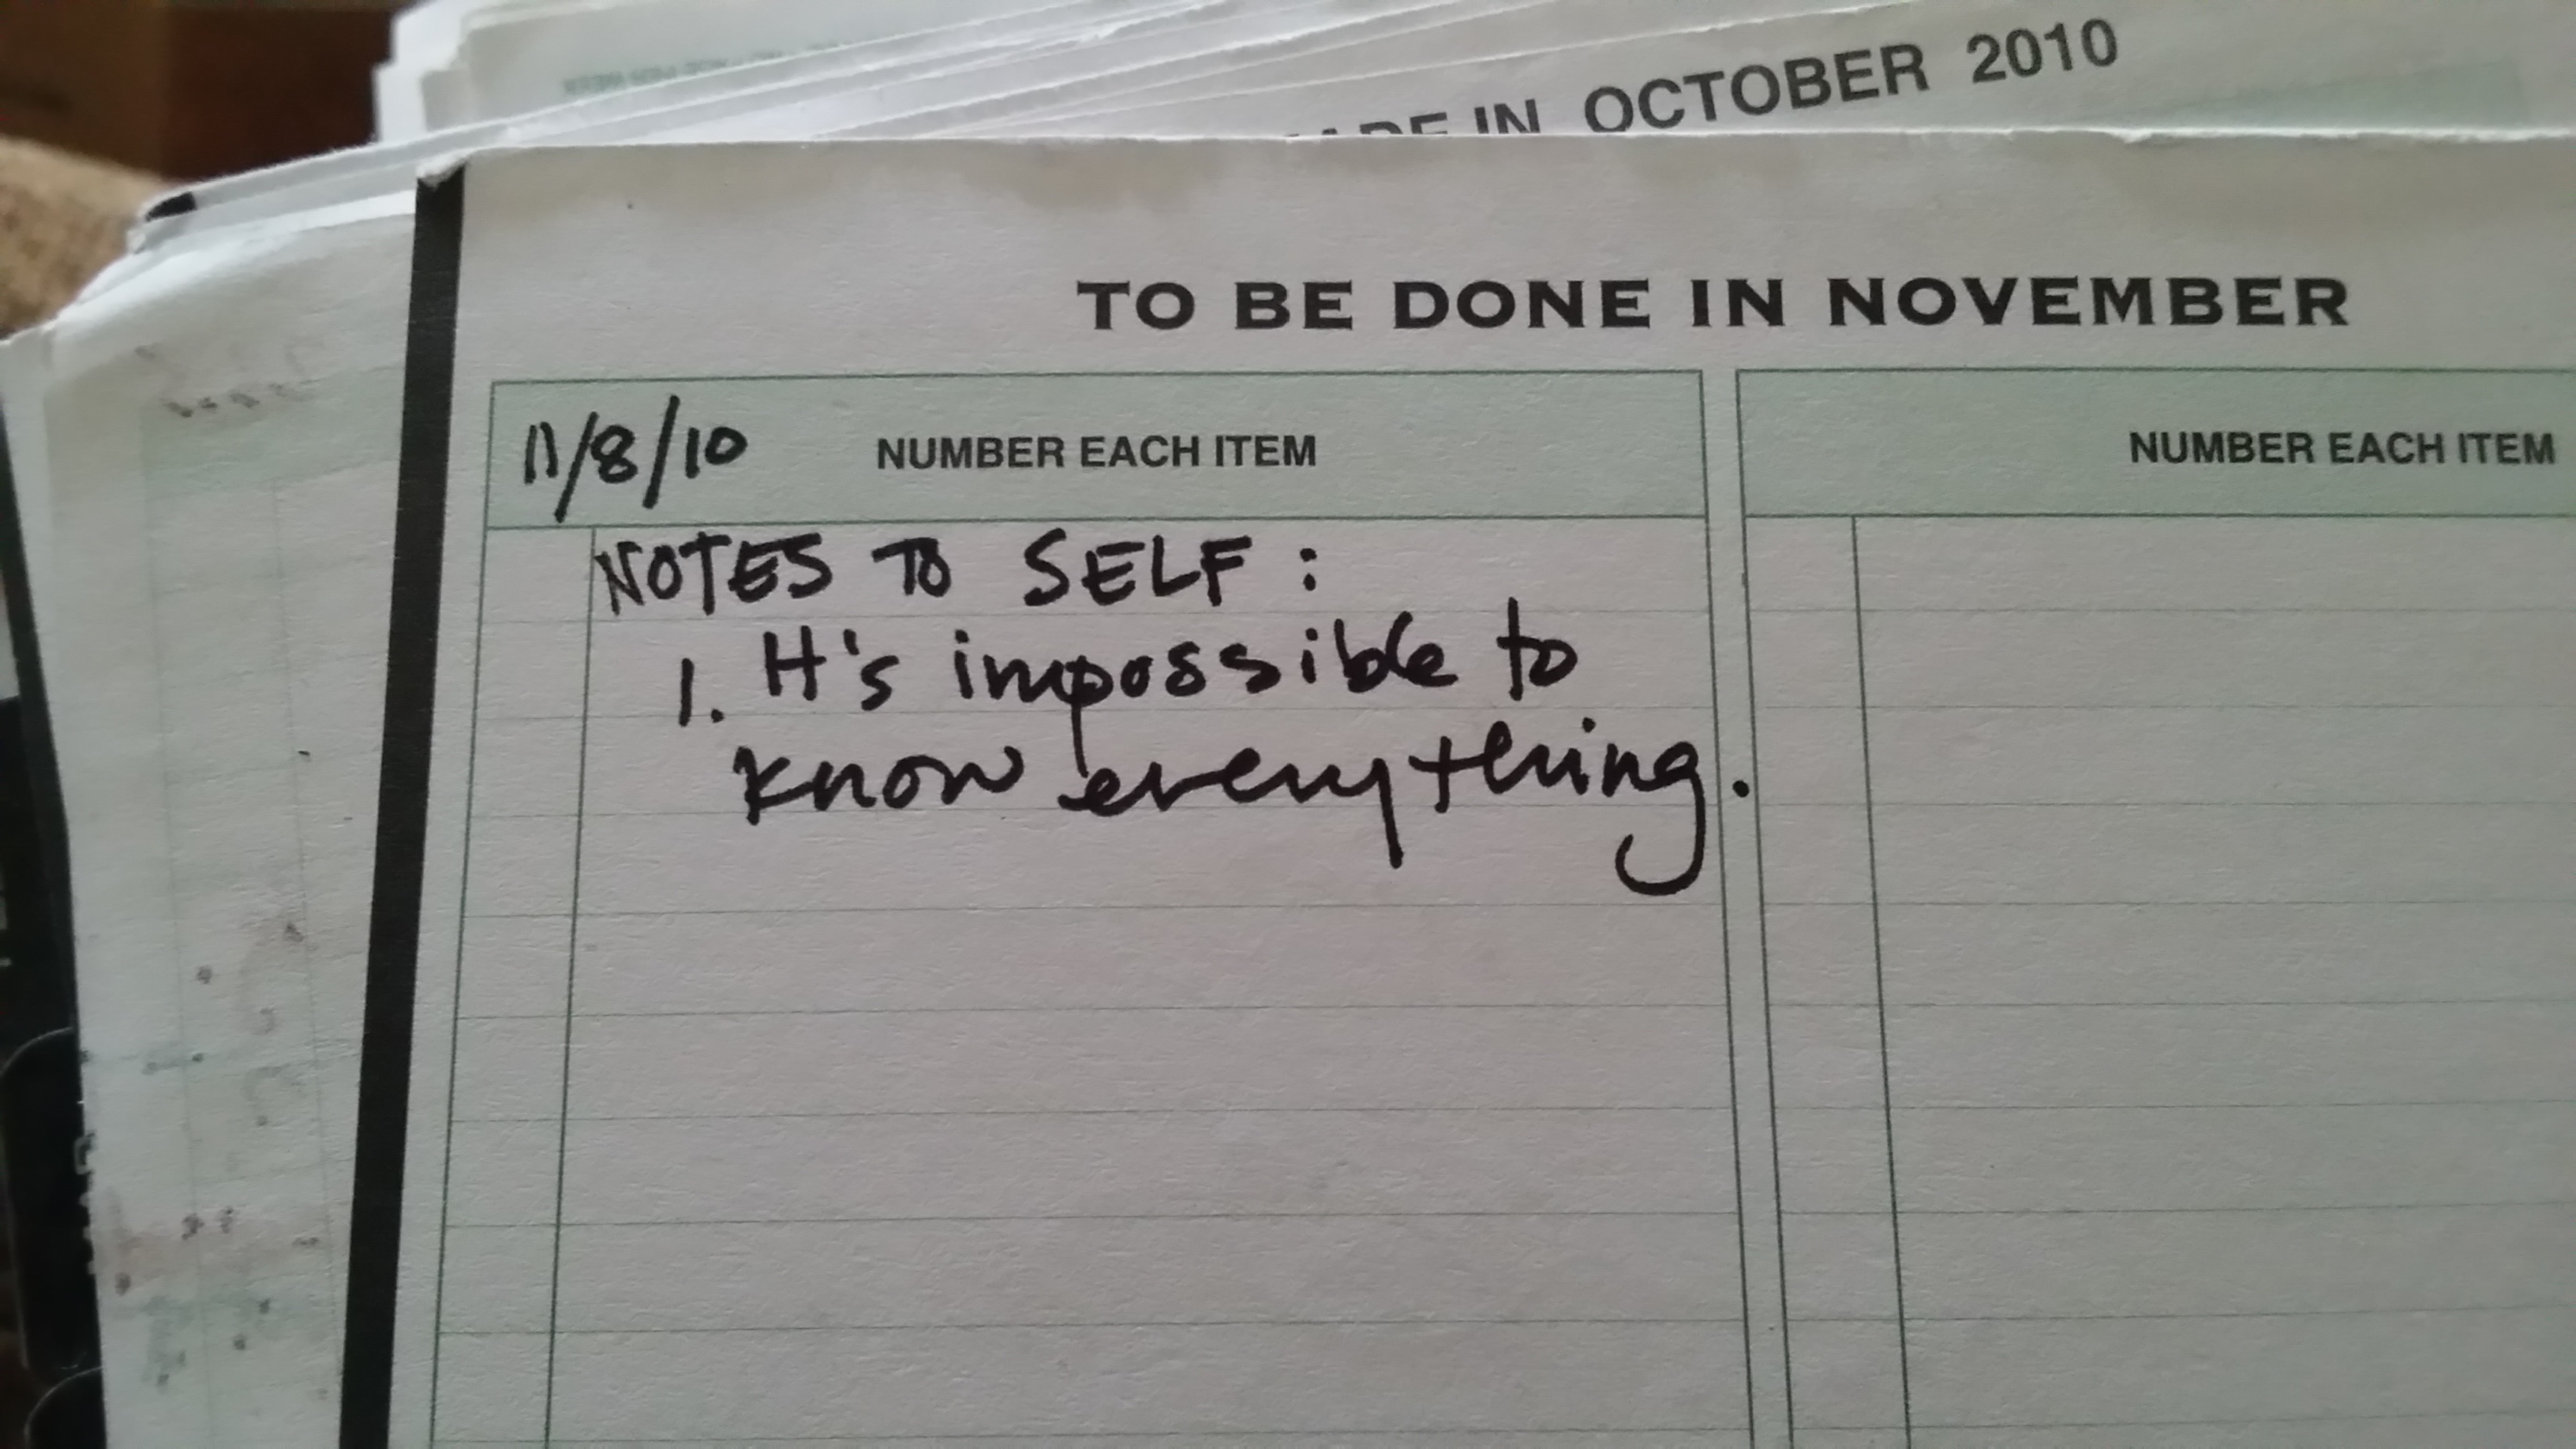 IN OCTOBER 2010
TO BE DONE IN NOVEMBER
11/8/10 NUMBER EACH ITEM
NUMBER EACH ITEM
NOTES TO SELF :
1. It's impossible to
know everything.